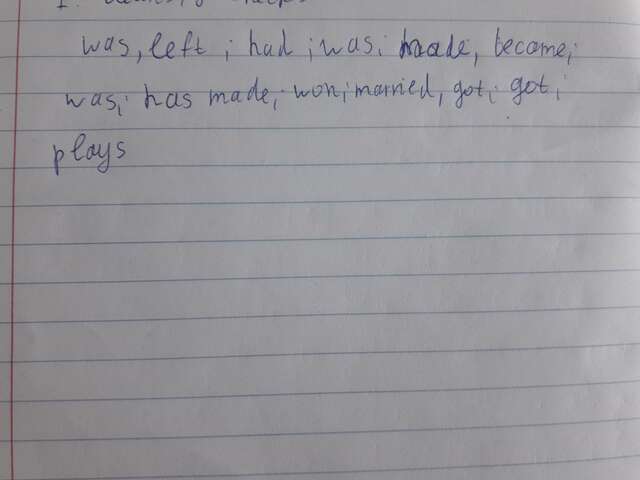 was, left ; had ; was ; made, become ;
was ; has made ; won ; married, got ; got ;
plays